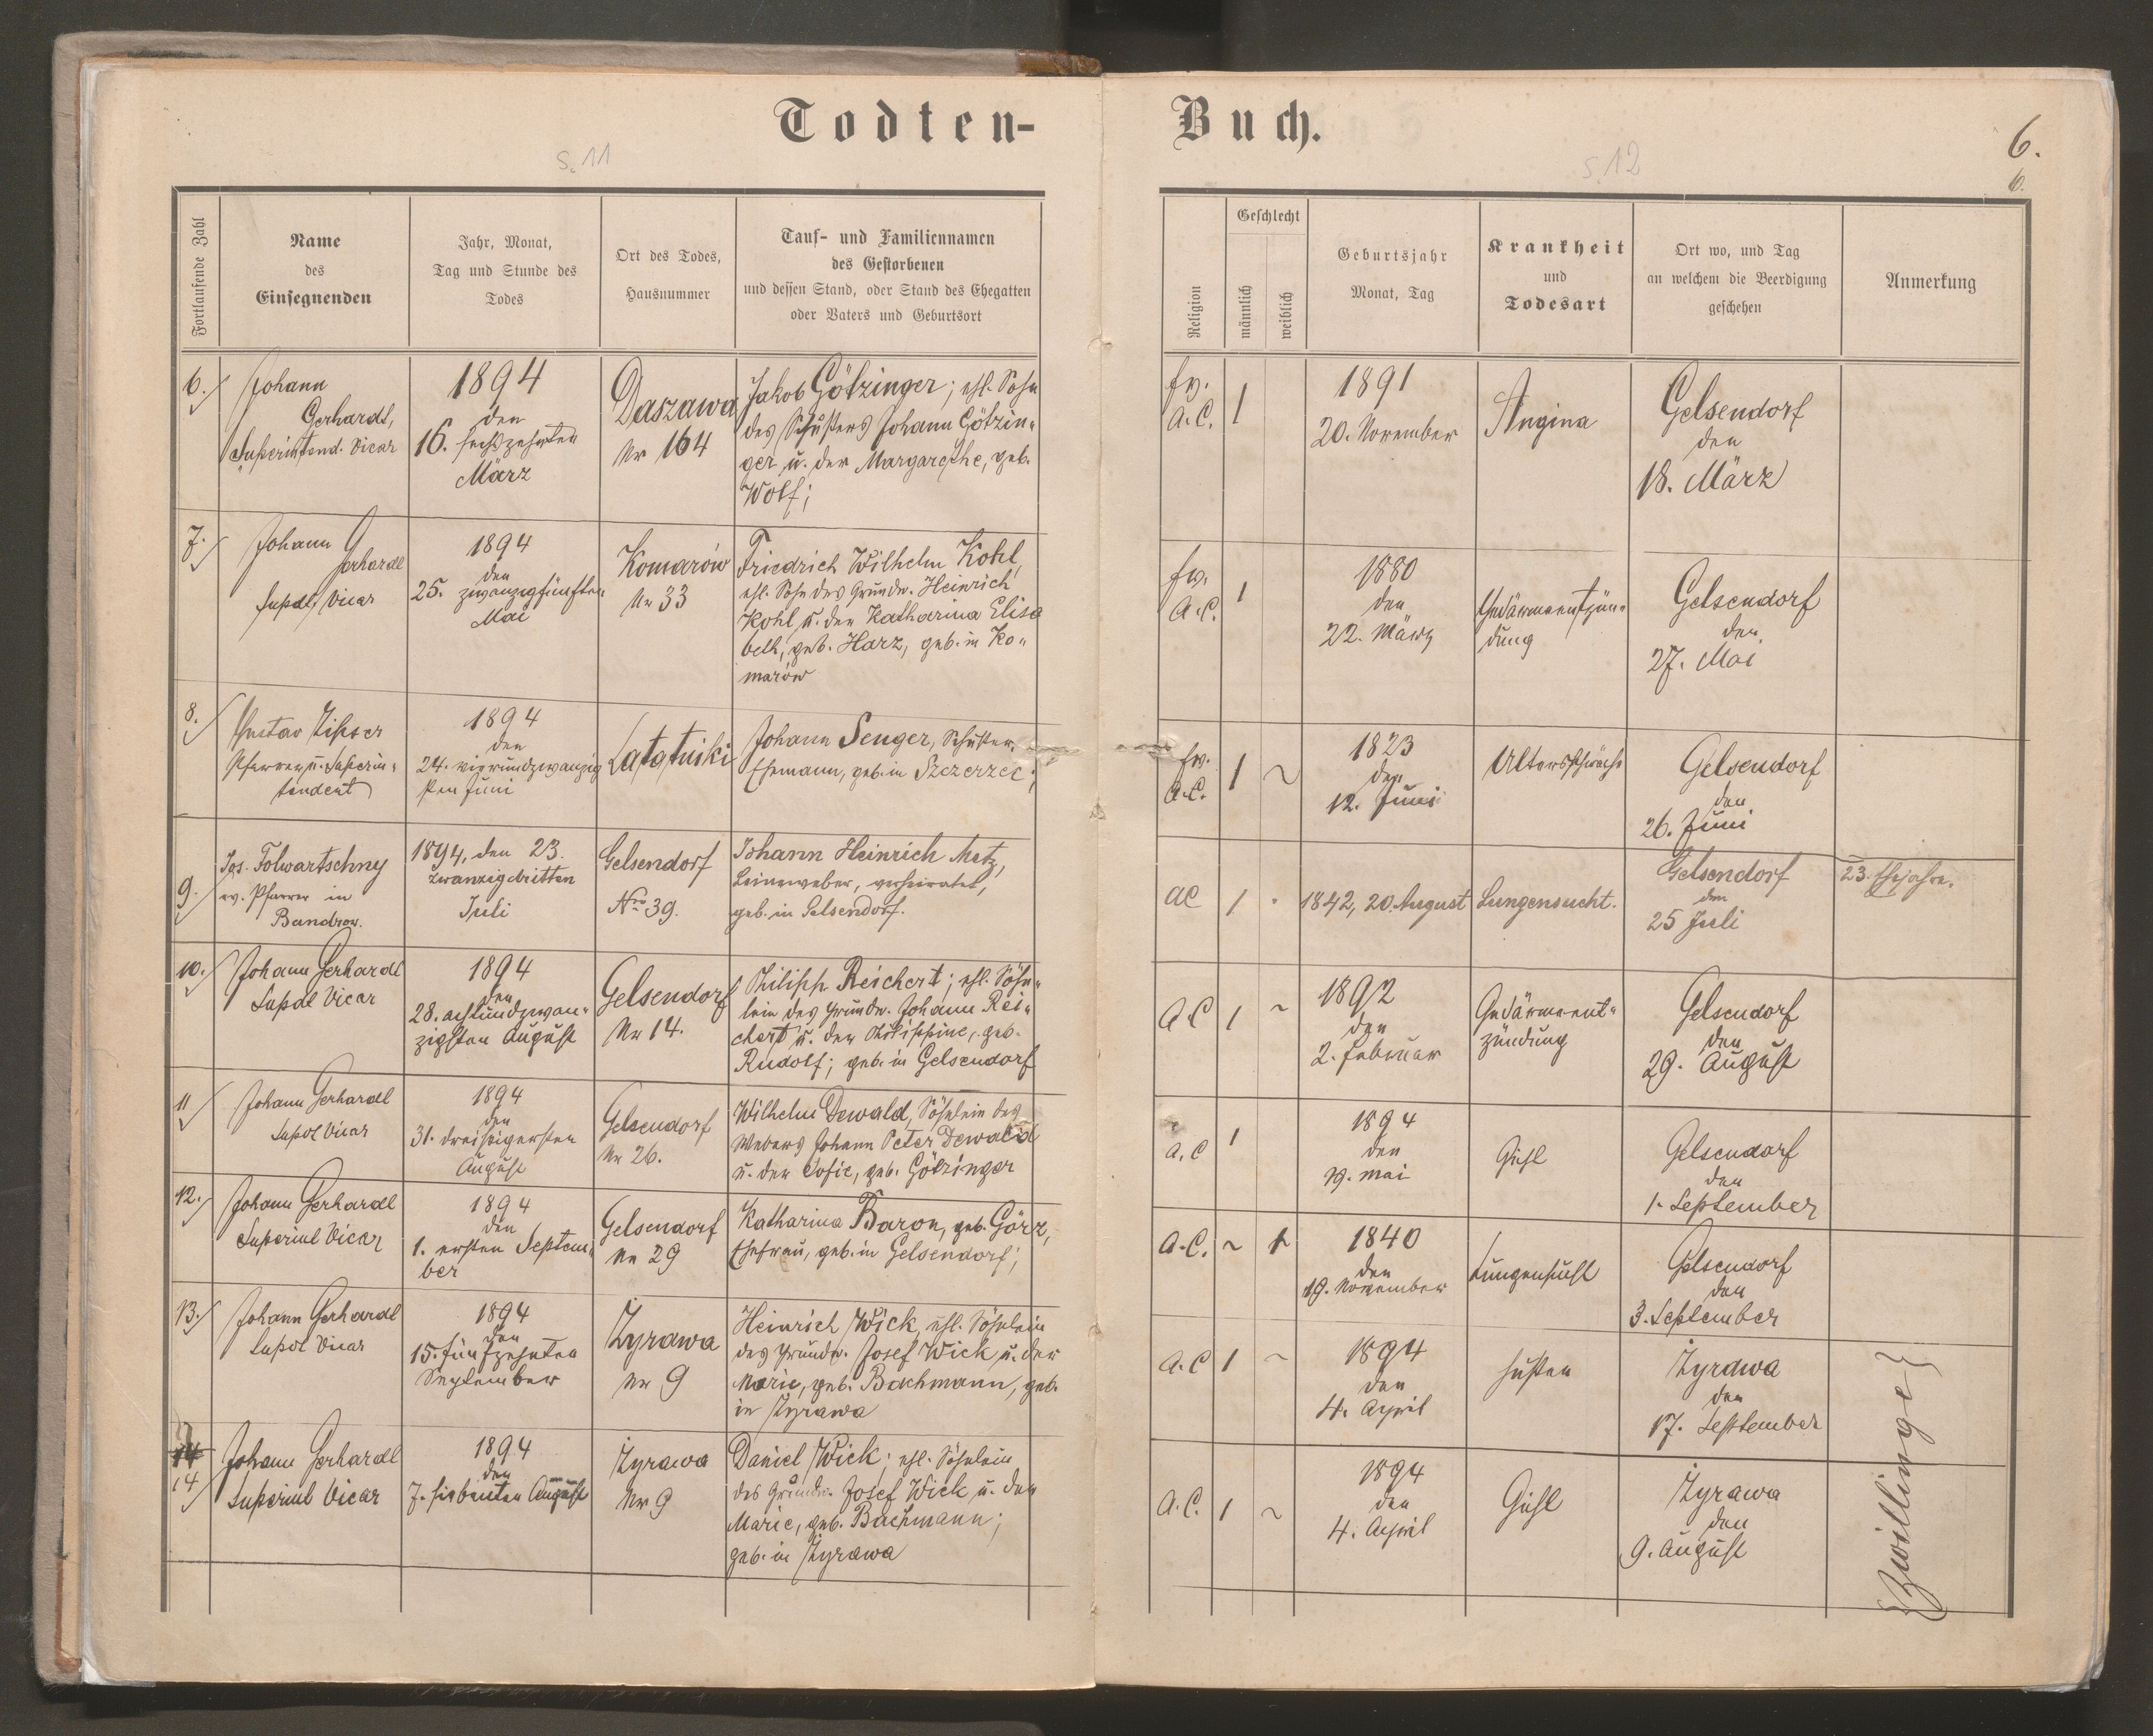 Todten-
Buch.
S. 11
S. 12
6.
6.
Fortlaufende Zahl
Name
des
Einsegnenden
Jahr, Monat,
Tag und Stunde des
Todes
Ort des Todes,
Hausnummer
Tauf- und Familiennamen
des Gestorbenen
und dessen Stand, oder Stand des Ehegatten
oder Vaters und Geburtsort
Religion
Geschlecht
männlich
weiblich
Geburtsjahr
Monat, Tag
Krankheit
und
Todesart
Ort wo, und Tag
an welchem die Beerdigung
geschehen
Anmerkung
6./
Johann
Gerhardt,
Superintend. Vicar
1894
den
16. sechszehnten
März
Daszawa
Nr 164
Jakob Götzinger; ehl. Sohn
des Schusters Johann Götzin-
ger u. der Margarethe, geb.
Wolf;
ev.
A.C.
1
1891
20. November
Angina
Gelsendorf
den
18. März
7./
Johann Gerhardt
Supdt. Vicar
1894
den
25. zwanzigfünften
Mai
Komarów
Nr 33
Friedrich Wilhelm Kohl,
ehl. Sohn des Grundw. Heinrich
Kohl u. der Katharina Elisa
beth, geb. Harz, geb. in Ko-
marów
ev.
A.C.
1
1880
den
22. März
Gedärmentzün-
dung
Gelsendorf
den
27. Mai
8./
Gustav Zipser
Pfarrer u. Superin-
tendent
1894
den
24. vierundzwanzig
sten Juni
Latatniki
Johann Senger, Schuster,
Ehemann, geb. in Szczerzec;
ev.
A.C.
1 ~
1823
den
12. Juni
Altersschwäche
Gelsendorf
den
26. Juni
9.
Jos. Folwartschny
ev. Pfarrer in
Bandrow.
1894, den 23.
zwanzigdritten
Juli
Gelsendorf
Nro 39.
Johann Heinrich Metz,
Leineweber, verheiratet,
geb. in Gelsendorf.
AC
1
1842, 20. August
Lungensucht.
Gelsendorf
den
25 Juli
23. Ehejahre.
10./
Johann Gerhardt
Supdt Vicar
1894
den
28. achtundzwan-
zigsten August
Gelsendorf
Nr 14.
Philipp Reichert; ehl. Söhn-
lein des Grundw. Johann Rei-
chert u. der Philippine, geb.
Rudolf; geb. in Gelsendorf
A.C
1 ~
1892
den
2. Februar
Gedärment-
zündung
Gelsendorf
den
29. August
11/
Johann Gerhardt
Supdt Vicar
1894
den
31. dreißigersten
August
Gelsendorf
Nr 26.
Wilhelm Dewald, Söhnlein des
Webers Johann Peter Dewald
u. der Sofie, geb. Götzinger
A.C
1
1894
den
19. Mai
Gicht
Gelsendorf
den
1. September
12./
Johann Gerhardt
Superint Vicar
1894
den
1. ersten Septem-
ber
Gelsendorf
Nr 29
Katharina Baron, geb. Görz,
Ehefrau, geb. in Gelsendorf;
A.C.
~ 1
1840
den
19. November
Lungensucht
Gelsendorf
den
3. September
13./
Johann Gerhardt
Supdt Vicar
1894
den
15. fünfzehnten
September
Zyrawa
Nr 9
Heinrich Wick, ehl. Söhnlein
des Grundw. Josef Wick u. der
Marie, geb. Bachmann, geb.
in Zyrawa
A.C
1 ~
1894
den
4. April
Husten
Zyrawa
den
17. September
14
14/
Johann Gerhardt
Superint Vicar
1894
den
7. siebenten August
Zyrawa
Nr 9
Daniel Wick; ehl. Söhnlein
des Grundw. Josef Wick u. der
Marie, geb. Bachmann;
geb. in Zyrawa
A.C.
1 ~
1894
den
4. April
Gicht
Zyrawa
den
9. August
{Zwillinge}